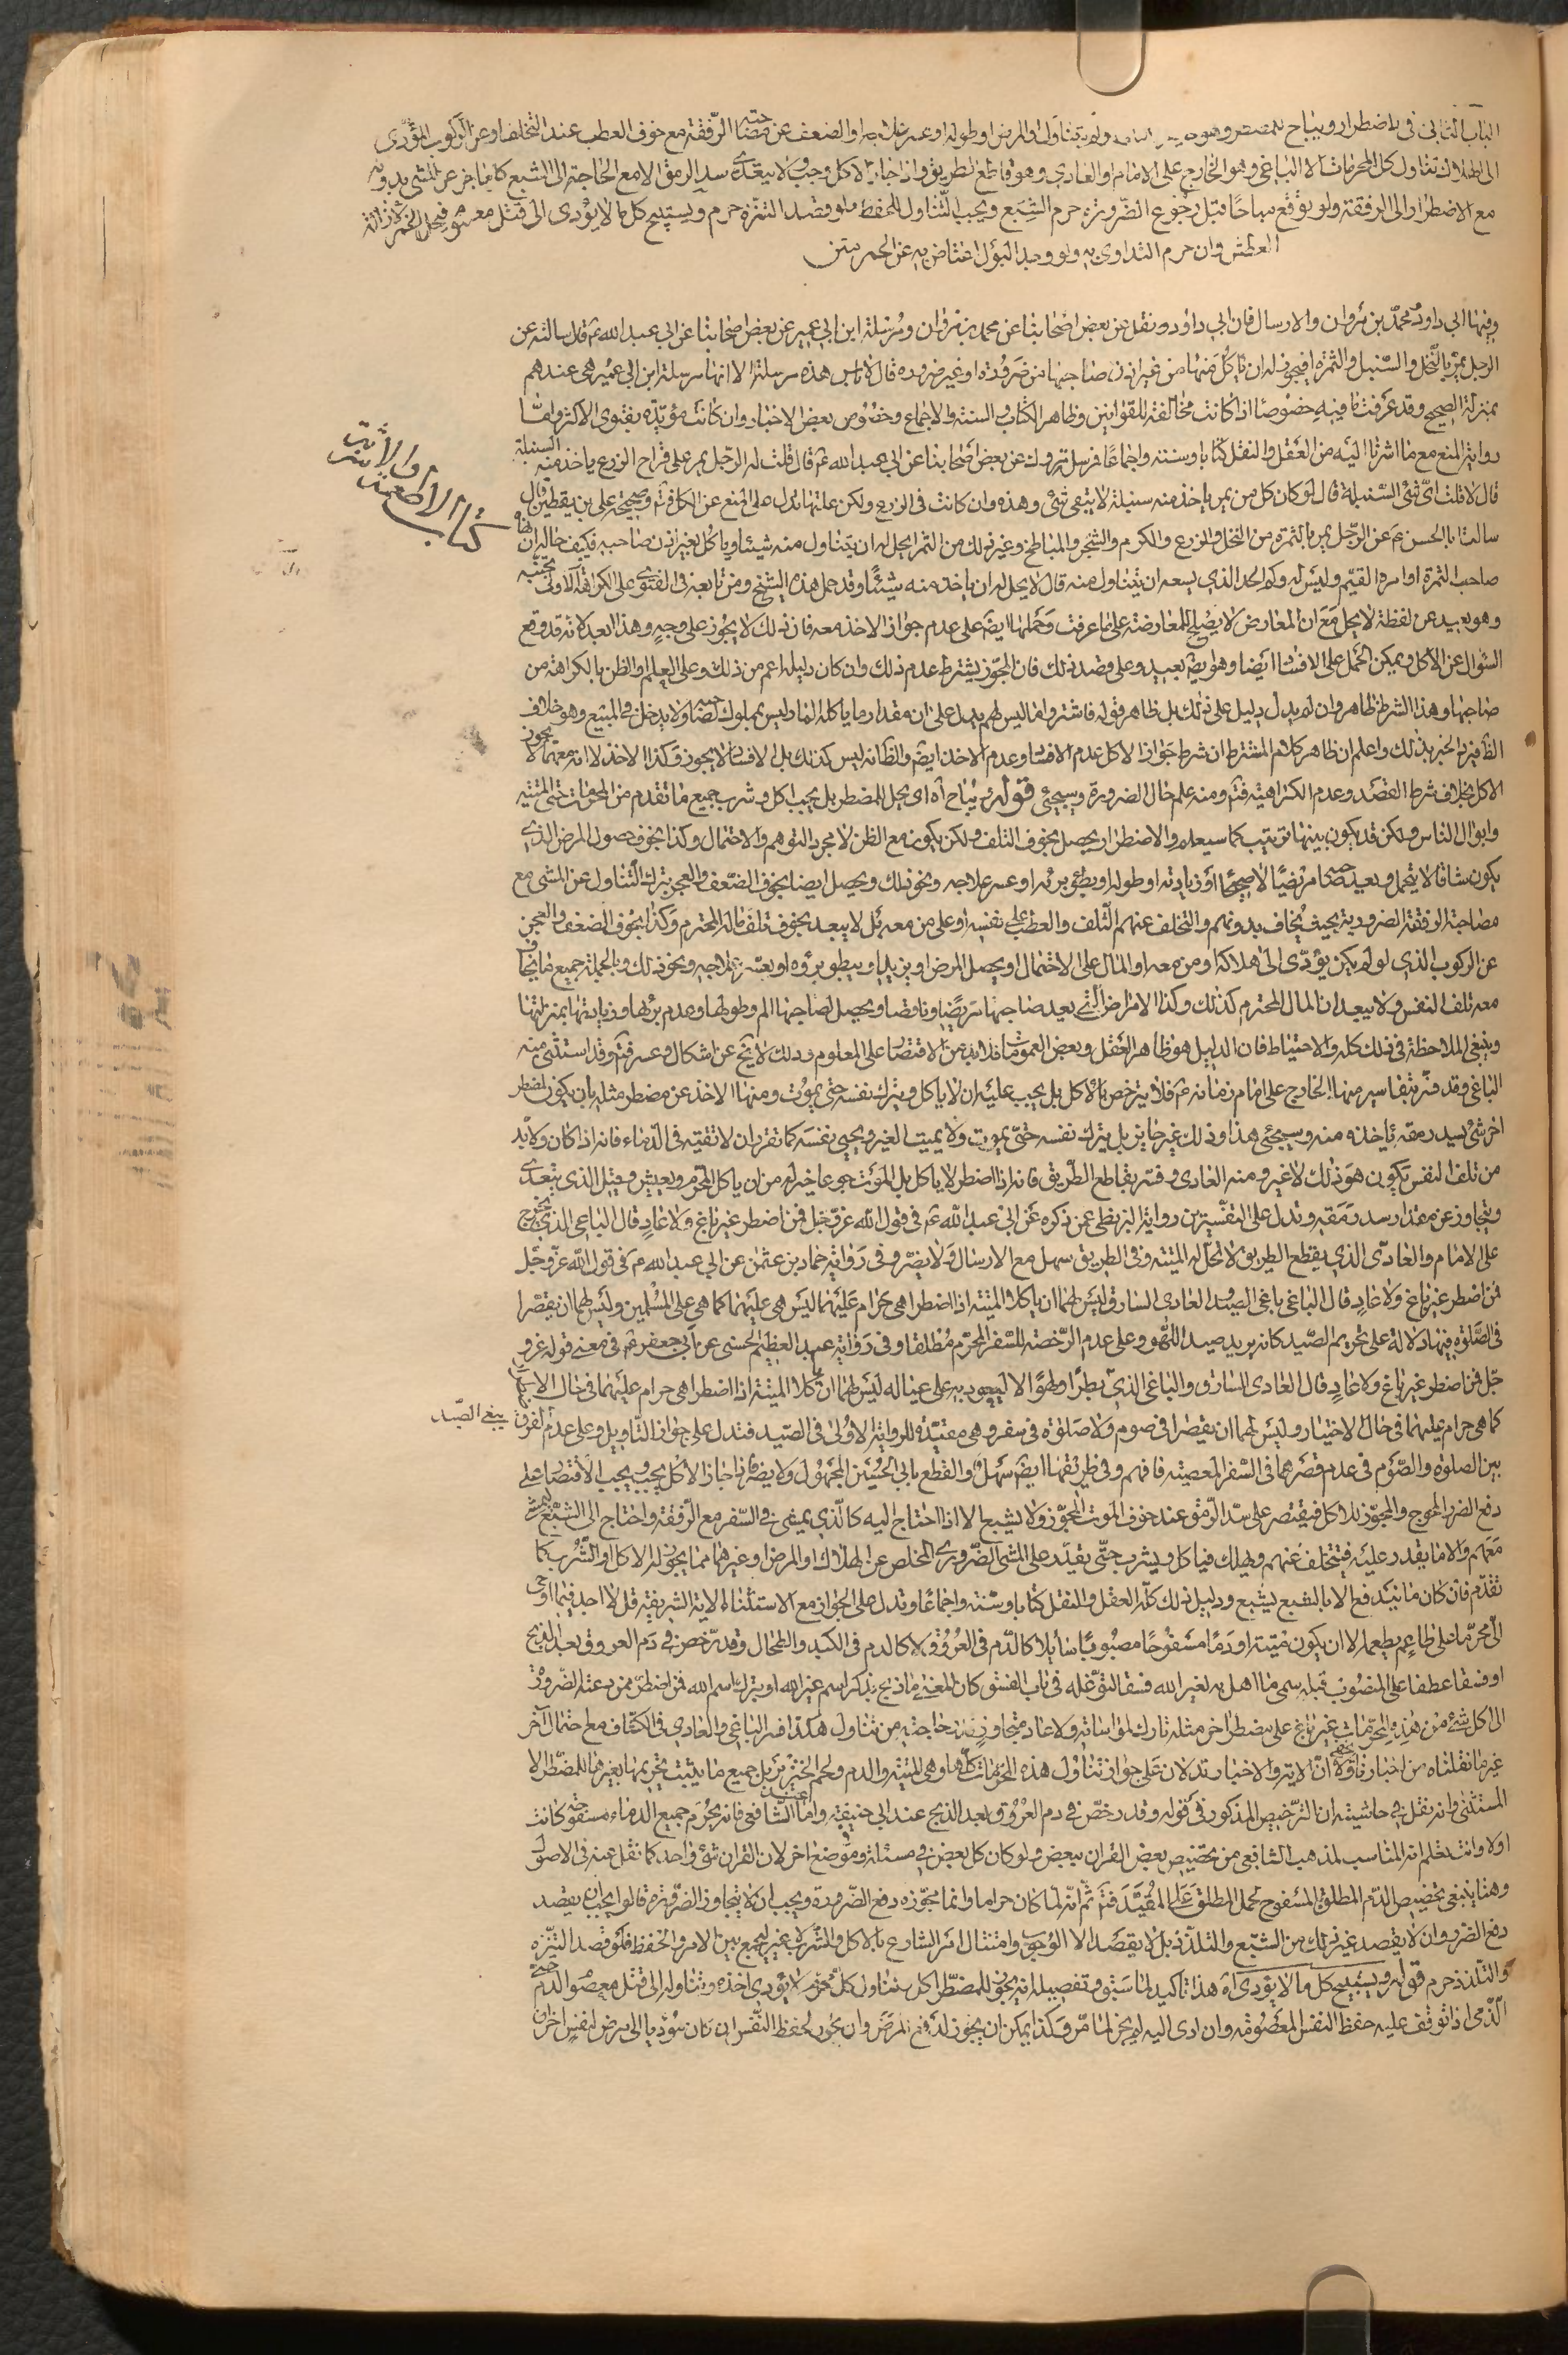 الباب الثانى فى الاضطرار ويباح للمضطر وهو من خاف التلف ولو لم يتناول او المرض او طوله او عسر علاجه او الضعف عن مصاحبة الرفقة مع خوف العطب عند التخلف او عن الركوب المؤدى
الى الهلاك تناول كل المحرمات الا الباغى وهو الخارج على الامام او العادى وهو قاطع الطريق واذا جاز الاكل وجب ولا يتعدى سد الرمق الا مع الحاجة الى الشبع كالعاجز عن المشى بدونه
مع الاضطرار الى الرفقة ولو توقع مباحا قبل رجوع الضرورة حرم الشبع ويجب التناول للحفظ فلو قصد التنزه حرم ويستبيح كل ما لا يؤدى الى قتل معصوم فيحل الخمر لازالة
العطش وان حرم التداوى به ولو وجد البول اعتاض به عن الخمر متن
وفيها ابى داود محمد بن مروان والارسال فان ابى داود نقل عن بعض اصحابنا عن محمد بن مروان ومرسلة ابن ابى عمير عن بعض اصحابنا عن ابى عبد الله ع قال سالته عن
الرجل يمر بالنخل والسنبل والثمرة افيجوز له ان ياكل منها من غير اذن صاحبها من ضرورة او غير ضرورة قال لا باس هذه مرسلة الا انها مرسلة ابن ابى عمير هى عندهم
بمنزلة الصحيح وقد عرفت ما فيه خصوصا اذا كانت مخالفة للقوانين وظاهر الكتاب والسنة والاجماع وخصوص بعض الاخبار وان كانت مؤيدة بفتوى الاكثر واما
رواية المنع مع ما اشرنا اليه من العقل والنقل كتابا وسنة واجماعا فمرسل مروك عن بعض اصحابنا عن ابى عبد الله ع قال قلت له الرجل يمر على قراح الزرع ياخذ منه السنبلة
قال لا قلت اى شئ السنبلة قال لو كان كل من يمر ياخذ منه سنبلة لا يبقى شئ وهذه وان كانت فى الزرع ولكن علتها تدل على المنع عن الكل فتم وصحيحة على بن يقطين قال
سالت ابا الحسن ع عن الرجل يمر بالثمرة من النخل والزرع والكرم والشجر والمباطخ وغير ذلك من الثمر ايحل له ان يتناول منه شيئا وياكل بغير اذن صاحبه فكيف حاله ان نهاه
صاحب الثمرة او امره القيم وليس له وكم الحد الذي يسعه ان يتناول منه قال لا يحل له ان ياخذ منه شيئا وقد حمل هذه الشيخ ومن تابعه فى الفتوى على الكراهة الاولى تجنبه
وهو بعيد عن لفظة لا يحل مع ان المعارض لا يصلح للمعارضة على ما عرفت وحملها ايضا على عدم جواز الاخذ معه فان ذلك لا يجوز على وجه وهذا ابعد لانه قد وقع
السؤال عن الاكل ويمكن الحمل على الافساد ايضا وهو ايضا بعيد وعلى قصد ذلك فان المجوز يشترط عدم ذلك وان كان دليله اعم من ذلك وعلى العلم او الظن بالكراهة من
صاحبها وهذا الشرط ظاهر وان لم يدل دليل على ذلك بل ظاهر قوله فاشتروا ما ليس لهم يدل على ان مقدار ما ياكله المار ليس بمملوك لصاحبه ولا يدخل فى المبيع وهو خلاف
الظاهر والخبر بذلك واعلم ان ظاهر كلام المشترط ان شرط جواز الاكل عدم الافساد وعدم الاخذ ايضا والظ انه ليس كذلك بل الافساد لا يجوز وكذا الاخذ لا انه معهما لا يجوز
الاكل بخلاف شرط القصد وعدم الكراهية فتم ومنه علم حال الضرورة وسيجئ قوله ويباح اه اى يحل للمضطر بل يجب اكل وشرب جميع ما تقدم من المحرمات حتى الميتة
وابوال الناس ولكن قد يكون بينها ترتيب كما سيعلم والاضطرار يحصل بخوف التلف ولكن يكون مع الظن لا مجرد التوهم والاحتمال وكذا بخوف حصول المرض الذي
يكون شاقا لا يتحمل ويعد صاحبه مريضا لا صحيحا او زيادته او طوله او بطؤ برئه او عسر علاجه ونحو ذلك ويحصل ايضا بخوف الضعف والعجز بترك التناول عن المشى مع
مصاحبة الرفقة الضرورية بحيث يخاف بدونهم والتخلف عنهم التلف والعطب على نفسه او على من معه بل لا يبعد بخوف تلف ماله المحترم وكذا بخوف الضعف والعجز
عن الركوب الذي لو لم يكن يؤدى الى هلاكه او من معه او المال على الاحتمال او يحصل المرض او يزيد او يبطو برؤه او يعسر علاجه ونحو ذلك وبالجملة جميع ما يخاف
معه تلف النفس ولا يبعد ان المال المحترم كذلك وكذا الامراض التى يعد صاحبها مريضا وناقصا ويحصل لصاحبها الم وطولها وعدم برئها وزيادتها بمنزلتها
وينبغى الملاحظة فى ذلك كله والاحتياط فان الدليل هو ظاهر العقل وبعض العمومات فلا بد من الاقتصار على المعلوم وذلك لا يخ عن اشكال وعسر فتم وقد استثنى منه
الباغى وقد فسر بتفاسير منها الخارج على امام زمانه ع فلا يترخص بالاكل بل يجب عليه ان لا ياكل ويترك نفسه حتى يموت ومنها الاخذ عن مضطر مثله بان يكون لمضطر
اخر شئ يسد رمقه ياخذه منه وسيجئ هذا وذلك غير جايز بل يترك نفسه حتى يموت ولا يميت الغير ويحيى نفسه كما تقرر ان لا تقية فى الدماء فانه اذا كان ولا بد
من تلف النفس يكون هو ذلك لا غير ومنه العادى وفسر بقاطع الطريق فانه اذا اضطر لا ياكل بل الموت جوعا خير له من ان ياكل المحرم ويعيش وقيل الذى يتعدى
ويتجاوز عن مقدار سد رمقه وتدل على التفسيرين رواية البزنطى عمن ذكره عن ابى عبد الله ع فى قول الله عز وجل فمن اضطر غير باغ ولا عاد قال الباغى الذى يخرج
على الامام والعادى الذى يقطع الطريق لا تحل له الميتة وفى الطريق سهل مع الارسال ولا يضر وفى رواية حماد بن عثمن عن ابى عبد الله ع فى قول الله عز وجل
فمن اضطر غير باغ ولا عاد قال الباغى باغى الصيد العادى السارق ليس لهما ان ياكلا الميتة اذا اضطرا هى حرام عليهما ليس هى عليهما كما هى على المسلمين وليس لهما ان يقصرا
فى الصلوة فيها دلالة على تحريم الصيد كانه يريد صيد اللهو وعلى عدم الرخصة للسفر المحرم مطلقا وفى رواية عبد العظيم الحسنى عن ابى جعفر ع فى معنى قوله عز و
جل فمن اضطر غير باغ ولا عاد قال العادى السارق والباغى الذى يبغى الصيد بطرا ولهوا لا ليعود به على عياله ليس لهما ان ياكلا الميتة اذا اضطرا هى حرام عليهما فى حال الاضطرار
كما هى حرام عليهما فى حال الاختيار وليس لهما ان يقصرا فى صوم ولا صلوة فى سفر وهى مقيدة للرواية الاولى فى الصيد فتدل على جواز التاويل وعلى عدم الفرق
بين الصلوة والصوم فى عدم قصرهما فى السفر المعصية فافهم وفى طريقها ايضا سهل والقطع بابى الحسين المجهول ولا يضر اذا جاز الاكل يجب ويجب الاقتصار على
دفع الضرر الموجب والمجوز للاكل فيقتصر على سد الرمق عند خوف الموت المجوز ولا يشبع الا اذا احتاج اليه كالذى يمشى فى السفر مع الرفقة واحتاج الى الشبع ليمشى
معهم والا ما يقدر عليه فيتخلف عنهم ويهلك فياكل ويشرب حتى يقدر على المشى الضرورى المخلص عن الهلاك او المرض او غيرهما مما يجوز له الاكل او الشرب كما
تقدم فان كان ما يندفع الا بالشبع يشبع ودليل ذلك كله العقل والنقل كتابا وسنة واجماعا وتدل على الجواز مع الاستثناء الاية الشريفة قل لا اجد فيما اوحى
الى محرما على طاعم يطعمه الا ان يكون ميتة او دما مسفوحا مصبوبا سايلا كالدم فى العروق لا كالدم فى الكبد والطحال وقد رخص فى دم العروق بعد الذبح
او فسقا عطفا على المنصوب قبله سمى ما اهل به لغير الله فسقا لتوغله فى باب الفسق كان المعنى ما ذبح بذكر اسم غير الله او بترك اسم الله فمن اضطر فمن دعته الضرورة
الى اكل شئ من هذه المحرمات غير باغ على مضطر اخر مثله تارك لمواساته ولا عاد متجاوز قدر حاجته من تناوله هكذا فسر الباغى والعادى فى الكشاف مع احتمال آخر
غير ما نقلناه من اخبارنا ولا ان الاية والاخبار تدلان على جواز تناول هذه المحرمات كلها وهى الميتة والدم ولحم الخنزير بل جميع ما يثبت تحريمها بغيرها للمضطر الا
المستثنى وانه نقل فى حاشيته ان الترخيص المذكور فى قوله وقد رخص فى دم العروق بعد الذبح عند ابى حنيفة واما الشافعى فانه يحرم جميع الدماء مسفوحة كانت
اولا وانت تعلم انه المناسب لمذهب الشافعى من تخصيص بعض القران ببعض ولو كان كل بعض فى مسئلة وموضع اخر لان القران شئ واحد كما نقل عنه فى الاصول
وهنا ينبغى تخصيص الدم المطلق بالمسفوح لحمل المطلق على المقيد فتم ثم انه لما كان حراما وانما مجوزه دفع الضرورة ويجب ان لا يتجاوز الضرورة قالوا يجب ان يقصد
دفع الضرر وان لا يقصد غير ذلك من الشبع والتلذذ بل لا يقصد الا الوجوب وامتثال امر الشارع بالاكل والشرب لا غير ليجمع بين الامر والحفظ فلو قصد التنزه
والتلذذ حرم قوله ويستبيح كل ما لا يؤدى اه هذا تاكيد لما سبق وتفصيله انه يجوز للمضطر اكل وتناول كل محرم لا يؤدى اخذه وتناوله الى قتل معصوم الدم حتى
الذمى اذا توقف عليه حفظ النفس المعصومة وان ادى اليه لم يجز لما مر وكذا يمكن ان يجوز لدفع المرض وان يجوز لحفظ النفس ان كان مؤديا الى مرض لنفس اخر ان
كتاب الاطعمة والاشربة
يبغى الصيد